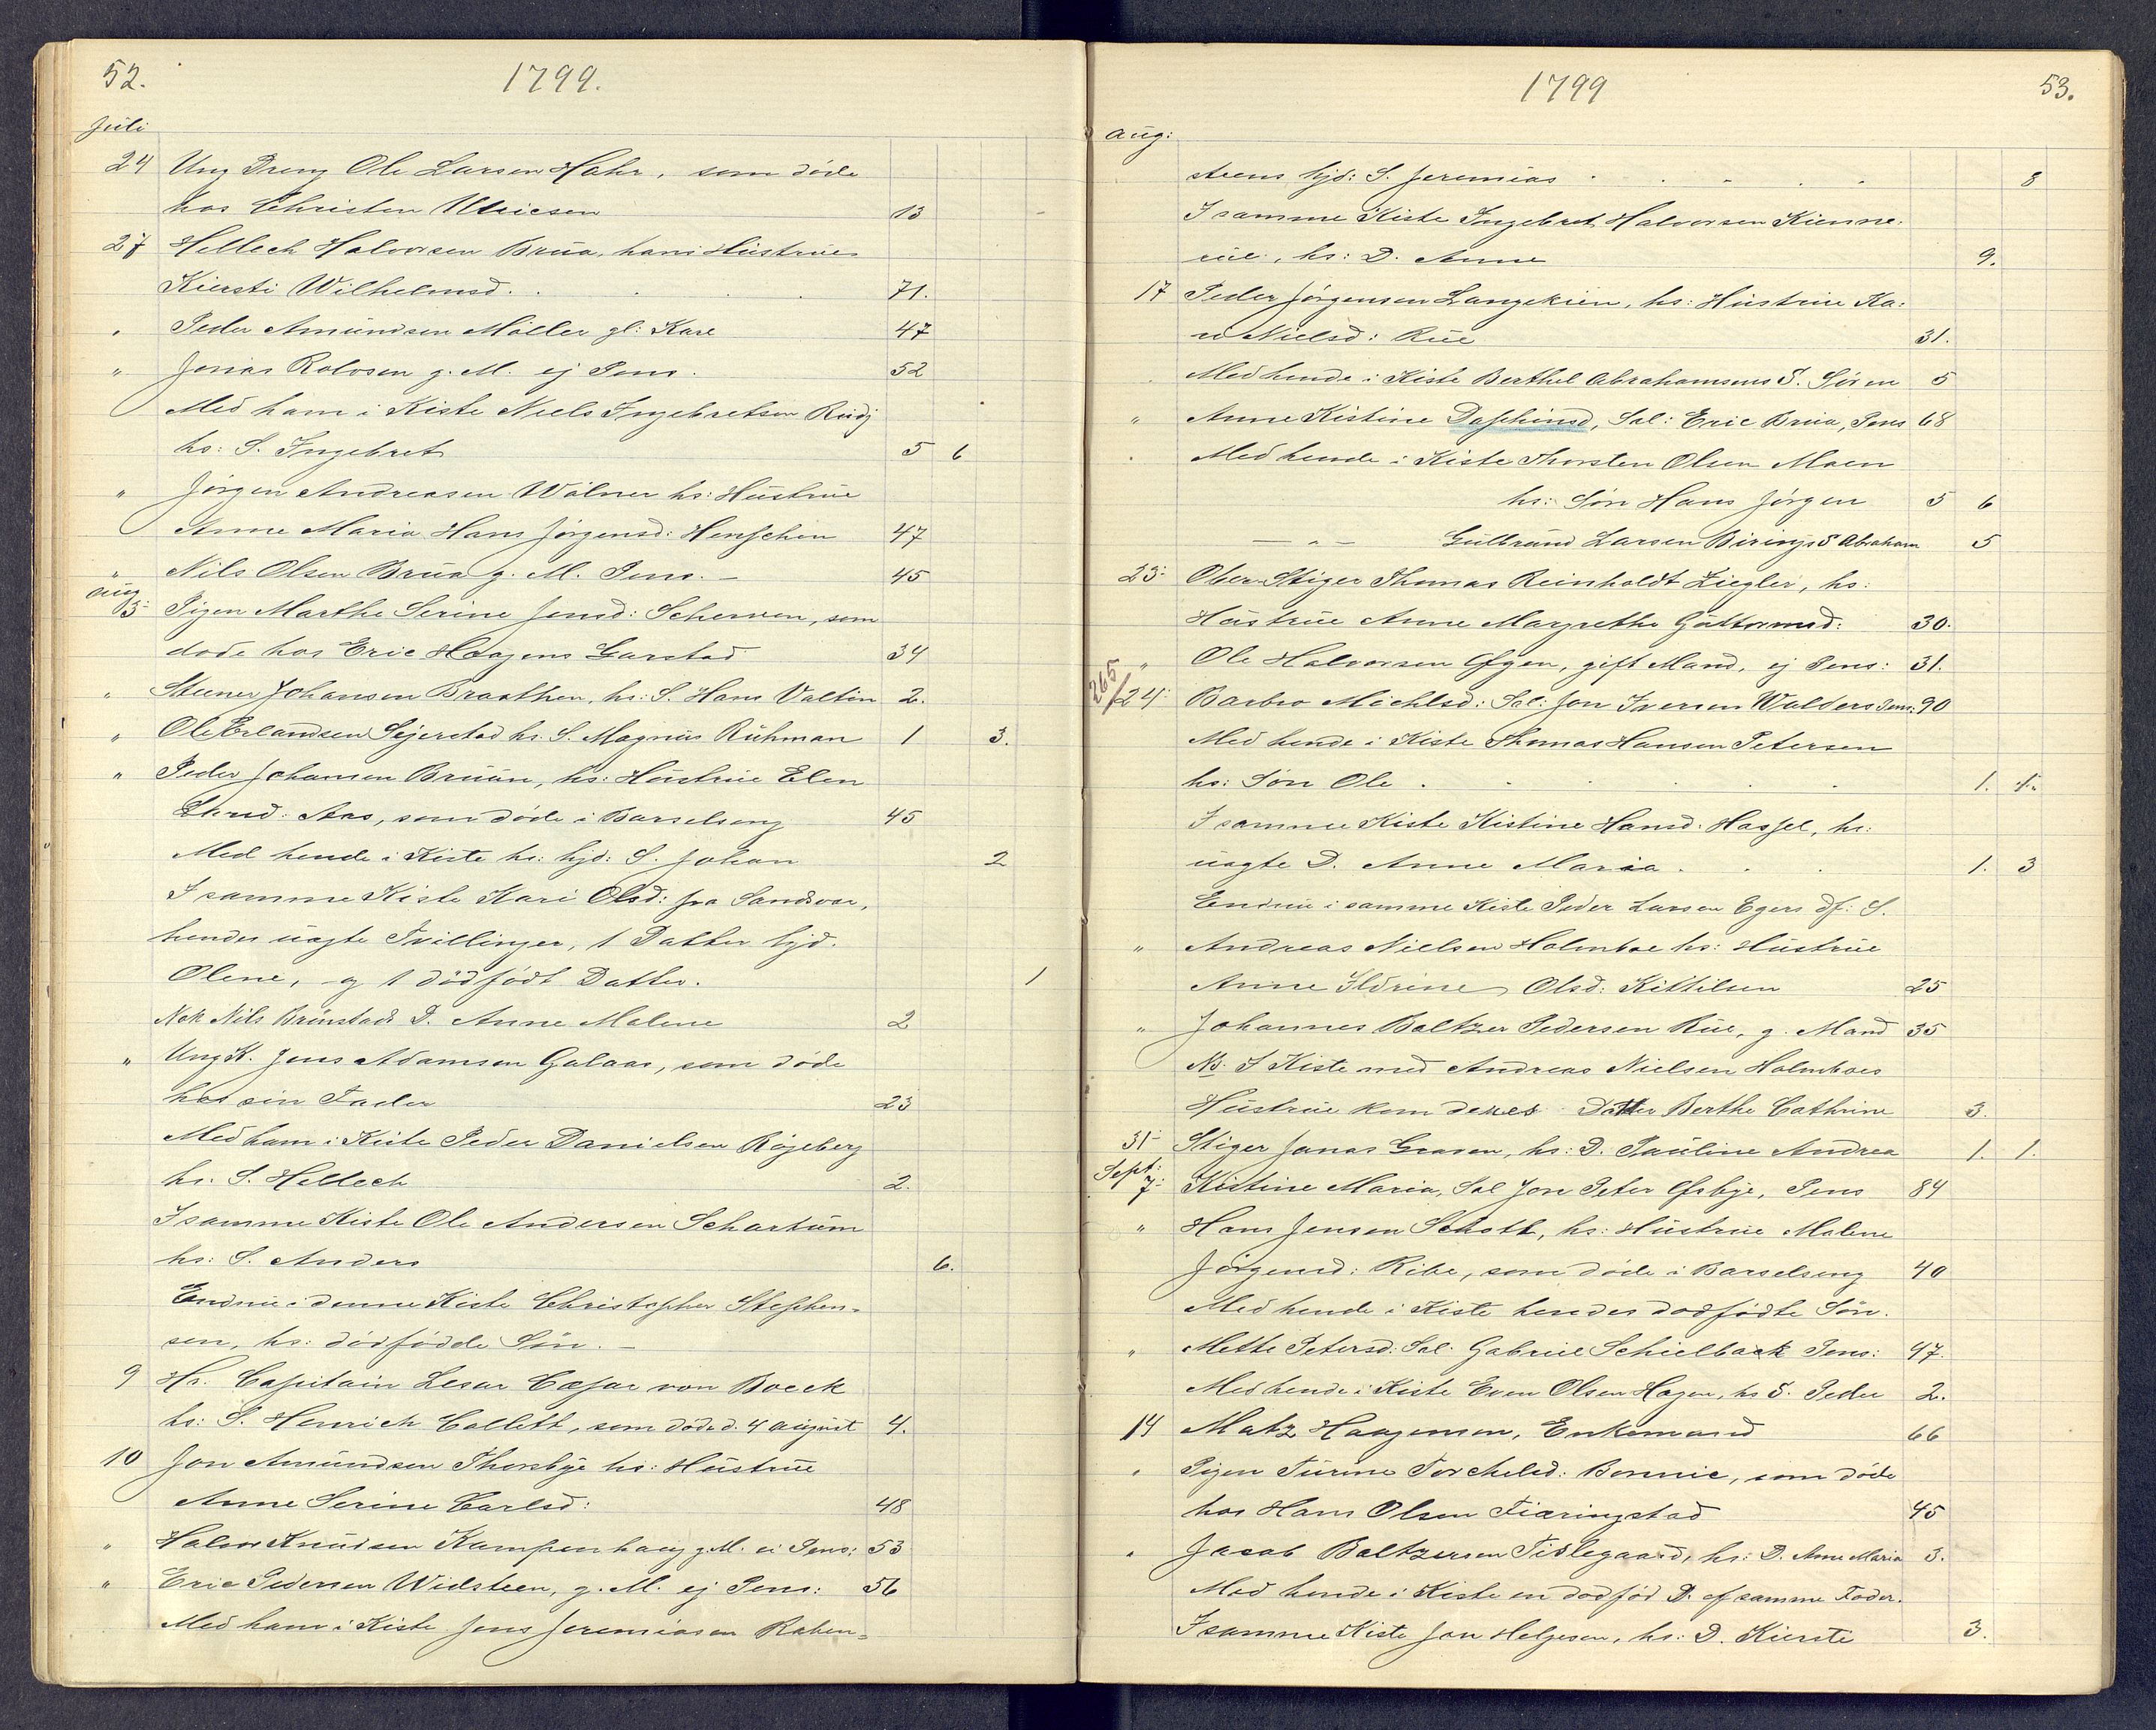 52.
1799.
Juli
24 Ung Dreng Ole Larsen Hahr, som döde
hos Christen Ulricsen 13
27 Hellech Halvorsen Brua, hans Hustrue
Kiersti Wilhelmsd. 71.
" Peder Amundsen Möller gl: Karl 47
" Jonas Rolosen g. M. ej Pens. 52
Med ham i Kiste Niels Ingebretsen Rudj
hs: S. Ingebret 5 6
" Jörgen Andreasen Wölner hs: Hustrue
Anne Maria Hans Jörgensd: Henschen 47
" Nils Olsen Brua g. M. Pens. – 45
aug
3: Pigen Marthe Serine Jensd: Scherven, som
döde hos Eric Haagens Garstad 34
" Steener Johansen Braathen, hs: S. Hans Valtin 2.
" Ole Erlandsen Sejerstad hs. S. Magnus Ruhman 1 3.
" Peder Johansen Bruun, hs: Hustrue Elen
Aas, som döde i Barselseng 45
Med hende i Kiste hs: hjd: S. Johan 2
I samme Kiste Kari Olsd: fra Sandsvær,
hendes uægte Tvillinger, 1 Datter hjd.
Olene, og 1 dödfödt Datter. 1
Nok Nils Brunstads D. Anne Malene 2
" Ung K. Jens Adamsen Galaas, som döde
hos sin Fader 23
Med ham i Kiste Peder Danielsen Röjeberg
hs. S. Hellech 2.
I samme Kiste Ole Andersen Schartum
hs: S. Anders 6.
Endnu i denne Kiste Christopher Stephen-
sen, hs: dödfödde Sön. –
9 Hr. Capitain Cæsar von Boeck
hs: S. Henrich Collett, som döde d. 4 august 4.
10 Jon Amundsen Thorsbye hs: Hustrue
Anne Serine Carlsd: 48
" Halvor Knudsen Kampenhaug g. M. ei Pens: 53
" Eric Pedersen Widsteen, g. M. ej Pens: 56
Med ham i Kiste Jens Jeremiasen Raben-
1799
53.
aug:
steens hjd: S. Jeremias 8
I samme Kiste Ingebret Halvorsen Kienne-
rue, hs: D. Anne 9.
17 Peder Jörgensen Langekien, hs: Hustrue Ka:
ri Nielsd: Rue 31.
Med hende i Kiste Berthel Abrahamsens S. Sören 5
" Anne Kistine Daschinsd, Sal: Eric Brua, Pens 68
Med hende i Kiste Thorsten Olsen Moen
hs: Sön Hans Jörgen 5 6
— " — Gulbrand Larsen Birings S Abraham 5
23: Ober-Stiger Thomas Reinholdt Ziegler, hs:
Hustrue Anne Margrethe Guttormsd: 30.
" Ole Halvorsen Gfgen, gift Mand, ej Pens: 31.
265/
24: Barbro Michlsd: Sal: Jon Iversen Walders Pens: 90
Med hende i Kiste Thomas Hansen Petersen
hs: Sön Ole 1. 1.
I samme Kiste Kistine Hansd: Hassel, hs:
uægte D. Anne Maria 1. 3
Endnu i samme Kiste Peder Larsen Egers df: S.
" Andreas Nielsen Holmboe hs: Hustrue
Anne Ildrine Olsd: Kittilsen 25
" Johannes Baltzer Pedersen Rue, g. Mand 35
Nb. I Kiste med Andreas Nielsen Holmboes
Hustrue kom deres Datter Berthe Cathrine 3.
31: Stiger Jonas Graven, hs: D. Pauline Andrea 1. 1.
Sept:
7: Kistine Maria, Sal Jon Peter Gfsbye, Pens 84
" Hans Jensen Schott, hs: Hustrue Malene
Jörgensd: Ribe, som döde i Barselseng 40
Med hende i Kiste hendes dödfödte Sön.
" Mette Petersd: Sal. Gabriel Schielback Pens: 97.
Med hende i Kiste Even Olsen Hagen, hs S. Peder 2.
14 Matz Haagensen, Enkemand 66
" Pigen Turine Torchelsd: Bonnie, som döde
hos Hans Olsen Fiaringstad 45
" Jacob Baltzersen Tislegaard, hs: D. Anne Maria 3.
Med hende i Kiste en dödfød D. af samme Fader.
I samme Kiste Jon Helgesen, hs: D. Kierste 3.